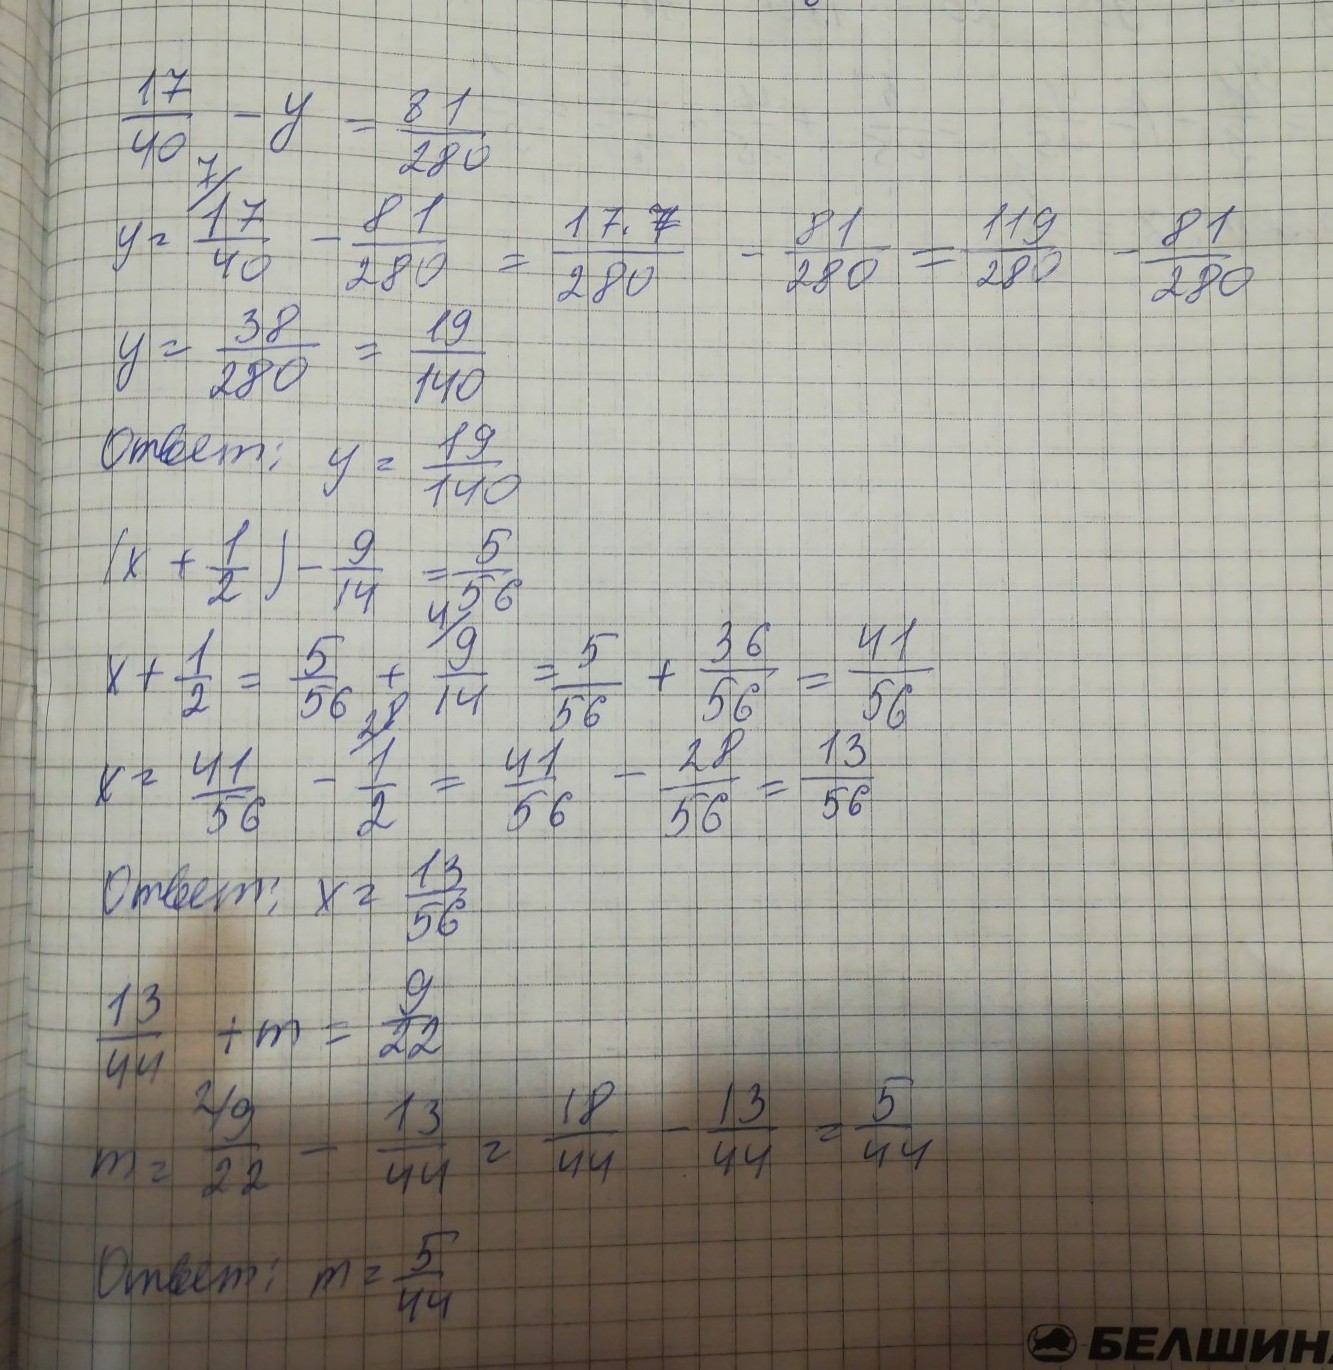 17/40 - y = 81/280
y = 7/ 17/40 - 81/280 = 17·7/280 - 81/280 = 119/280 - 81/280
y = 38/280 = 19/140
Ответ: y = 19/140
(x + 1/2) - 9/14 = 5/56
x + 1/2 = 5/56 + 4/ 9/14 = 5/56 + 36/56 = 41/56
x = 41/56 - 28/ 1/2 = 41/56 - 28/56 = 13/56
Ответ: x = 13/56
13/44 + m = 9/22
m = 2/ 9/22 - 13/44 = 18/44 - 13/44 = 5/44
Ответ: m = 5/44
БЕЛШИНА